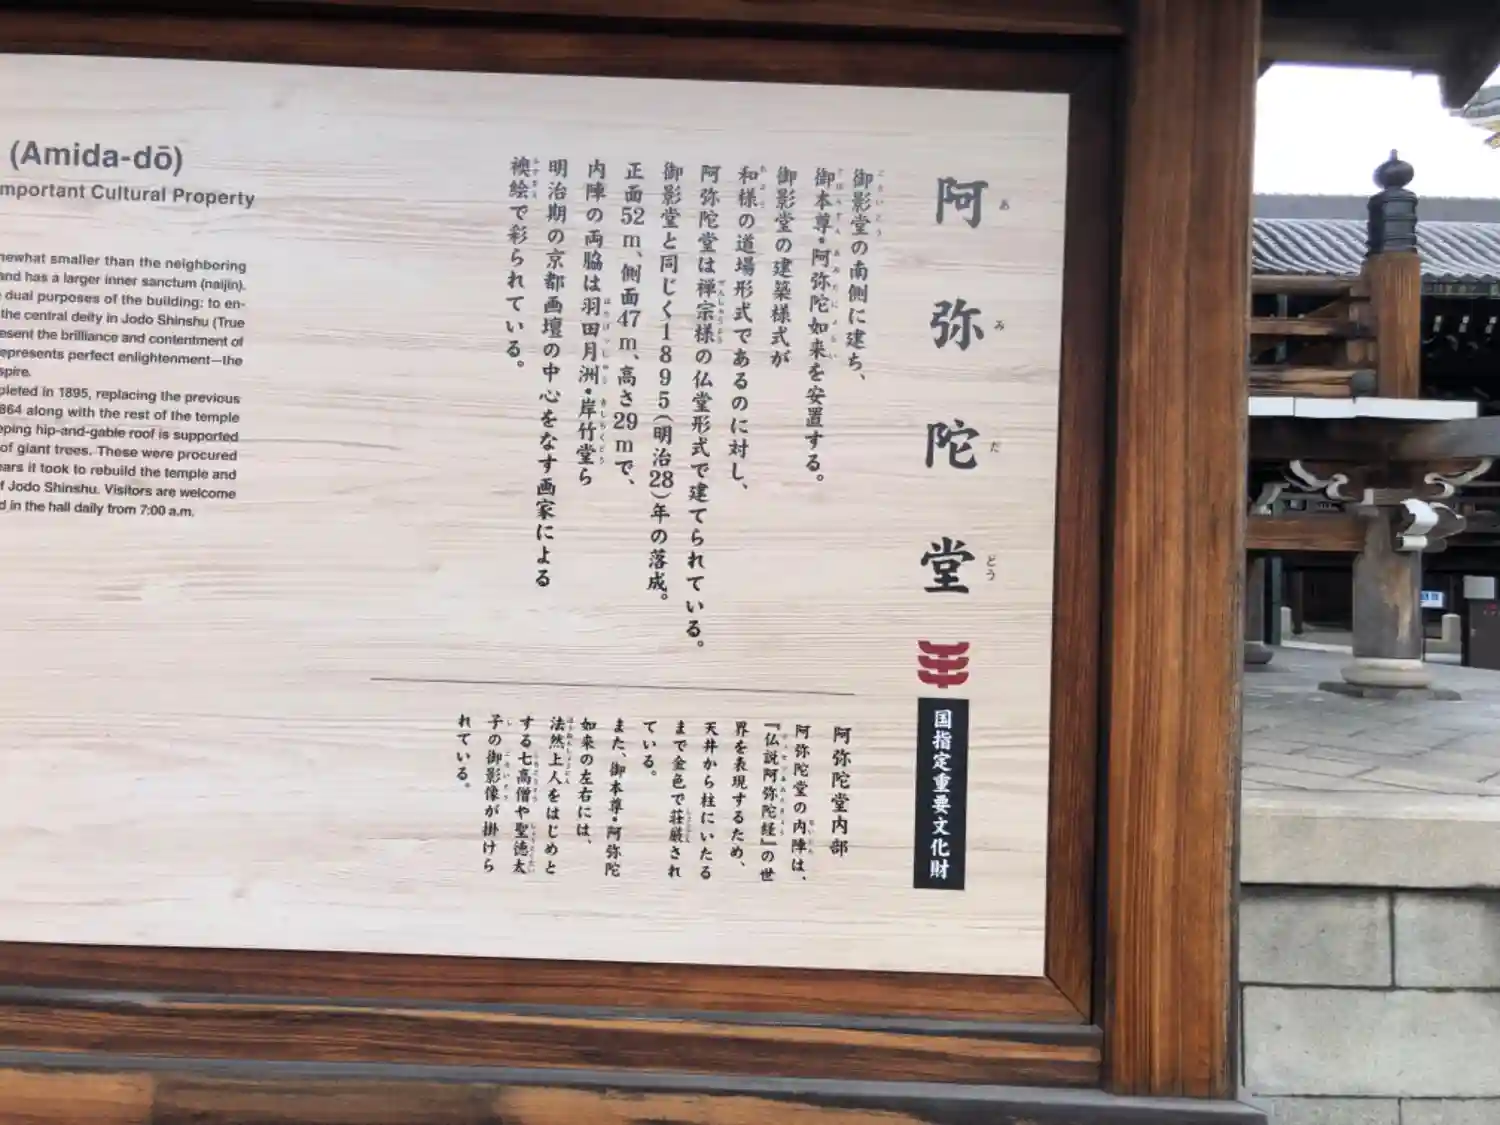 阿弥陀堂
あみだどう
国指定重要文化財
御影堂の南側に建ち、
御本尊・阿弥陀如来を安置する。
御影堂の建築様式が
和様の道場形式であるのに対し、
阿弥陀堂は禅宗様の仏堂形式で建てられている。
御影堂と同じく1895(明治28)年の落成。
正面52m、側面47m、高さ29mで、
内陣の両脇は羽田月洲・岸竹堂ら
明治期の京都画壇の中心をなす画家による
襖絵で彩られている。
阿弥陀堂内部
阿弥陀堂の内陣は、
『仏説阿弥陀経』の世
界を表現するため、
天井から柱にいたる
まで金色で荘厳され
ている。
また、御本尊・阿弥陀
如来の左右には、
法然上人をはじめと
する七高僧や聖徳太
子の御影像が掛けら
れている。
(Amida-dō)
mportant Cultural Property
newhat smaller than the neighboring
and has a larger inner sanctum (naijin).
dual purposes of the building: to en-
the central deity in Jodo Shinshu (True
esent the brilliance and contentment of
epresents perfect enlightenment—the
spire.
pleted in 1895, replacing the previous
864 along with the rest of the temple
eping hip-and-gable roof is supported
of giant trees. These were procured
ears it took to rebuild the temple and
f Jodo Shinshu. Visitors are welcome
d in the hall daily from 7:00 a.m.